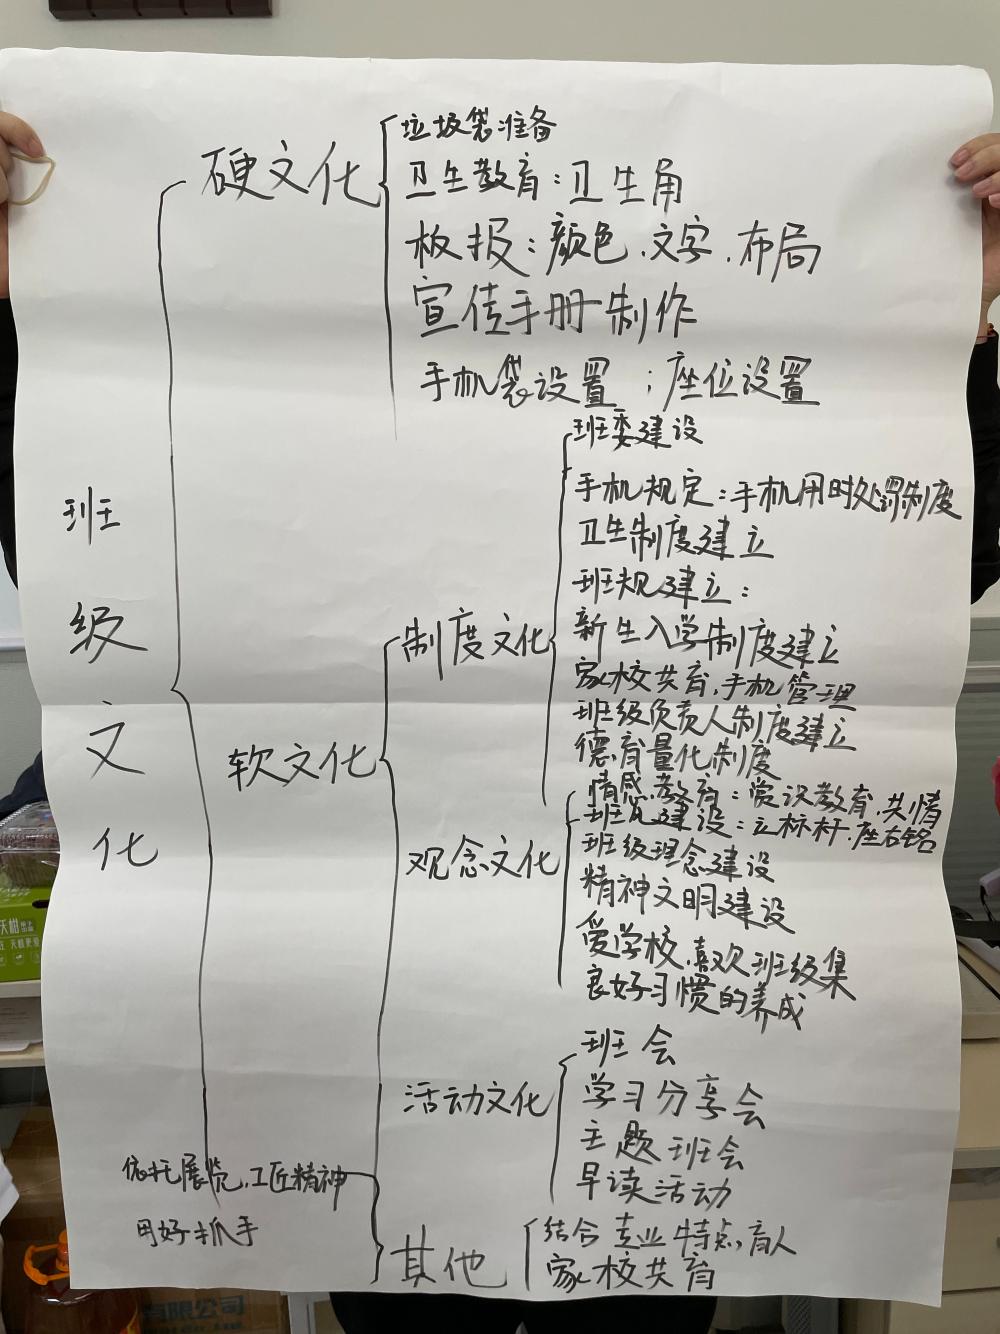 班级文化
硬文化
垃圾袋准备
卫生教育：卫生角
板报：颜色、文字、布局
宣传手册制作
手机袋设置；座位设置
软文化
制度文化
班委建设
手机规定：手机用时处罚制度
卫生制度建立
班规建立：
新生入学制度建立
家校共育、手机管理
班级负责人制度建立
德育量化制度
观念文化
情感教育：赏识教育、共情
班风建设：立标杆、座右铭
班级理念建设
精神文明建设
爱学校、喜欢班级集
良好习惯的养成
活动文化
班会
学习分享会
主题班会
早读活动
依托展览、工匠精神
用好抓手
其他
结合专业特点育人
家校共育
有限公司